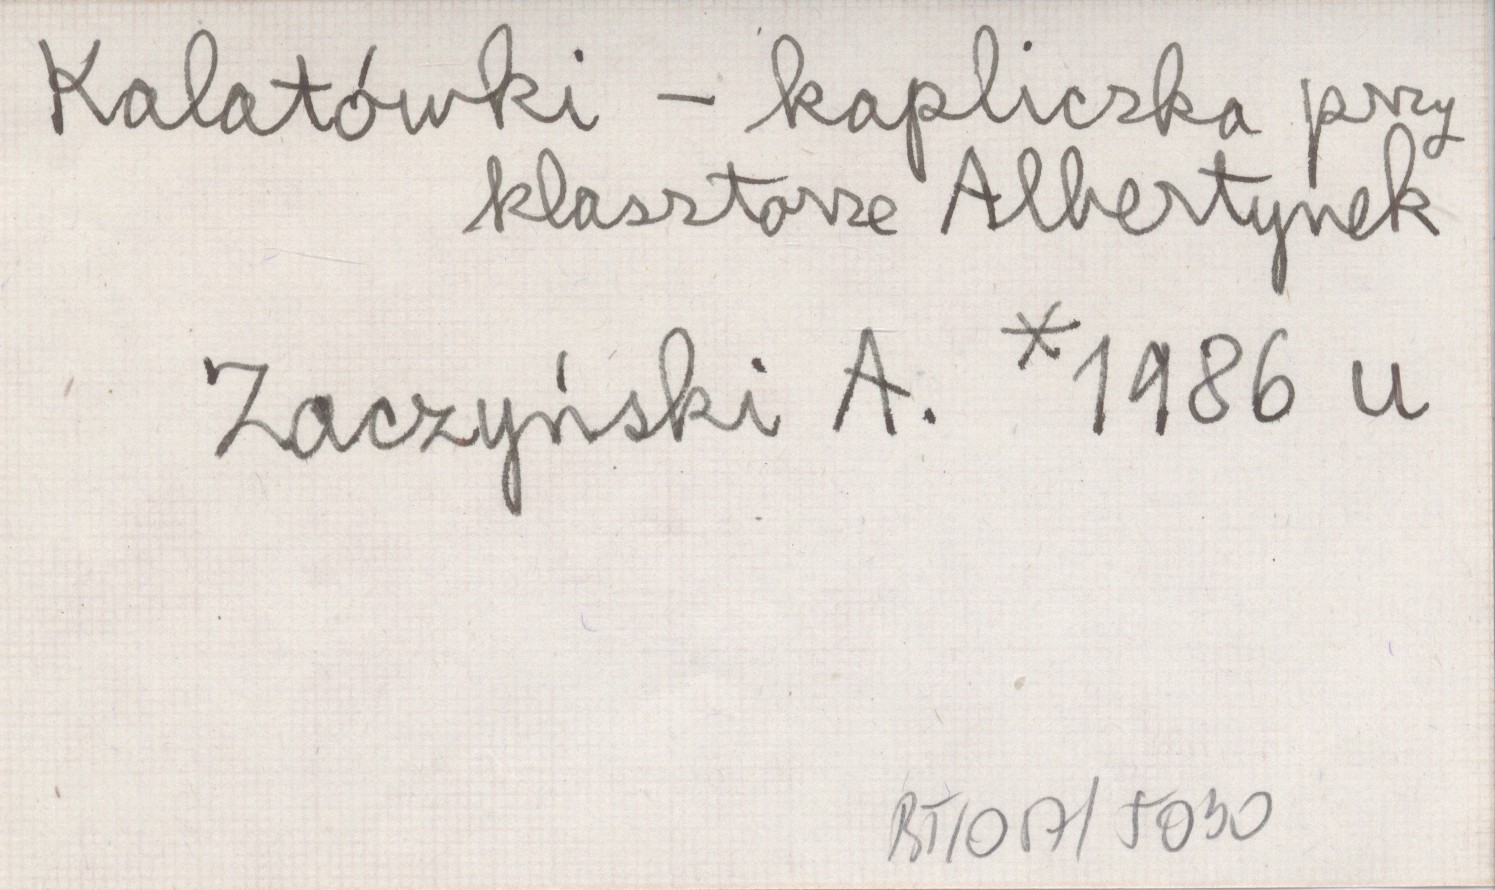 Kalatówki – kapliczka przy
klasztorze Albertynek
Zaczyński A. *1986 u